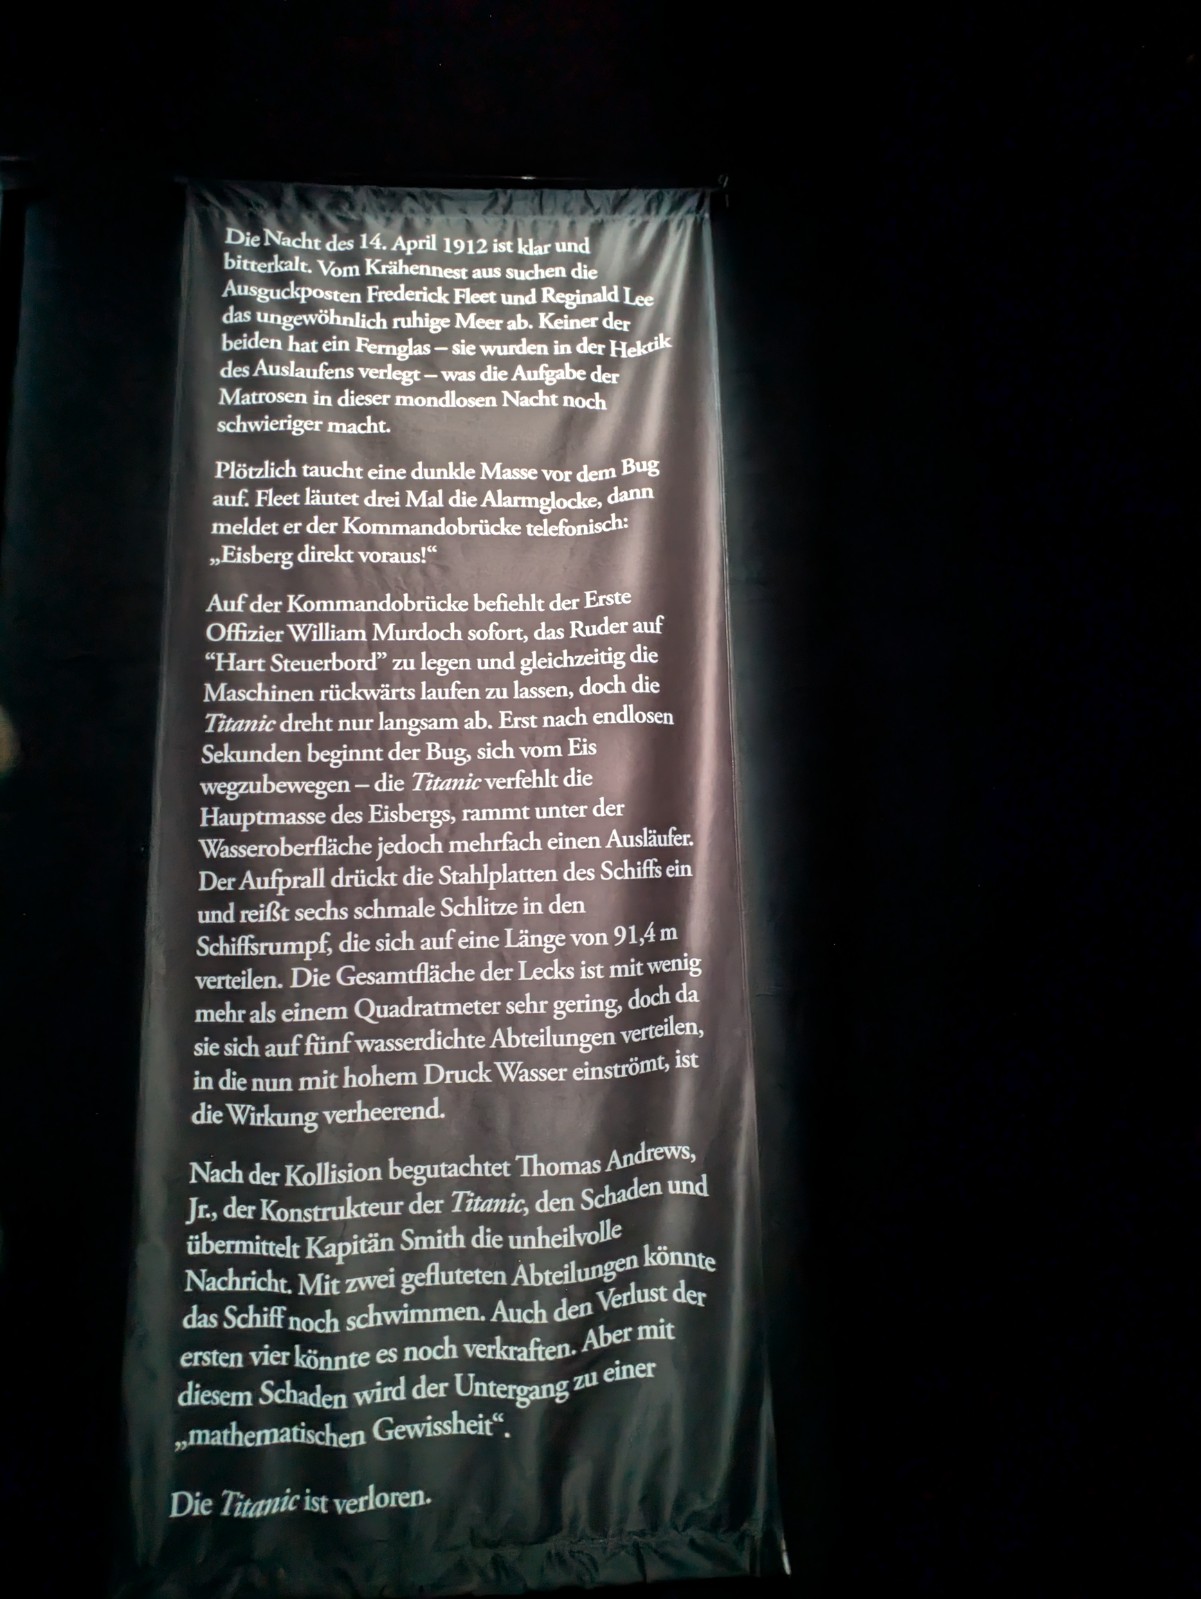 Die Nacht des 14. April 1912 ist klar und
bitterkalt. Vom Krähennest aus suchen die
Ausguckposten Frederick Fleet und Reginald Lee
das ungewöhnlich ruhige Meer ab. Keiner der
beiden hat ein Fernglas – sie wurden in der Hektik
des Auslaufens verlegt – was die Aufgabe der
Matrosen in dieser mondlosen Nacht noch
schwieriger macht.
Plötzlich taucht eine dunkle Masse vor dem Bug
auf. Fleet läutet drei Mal die Alarmglocke, dann
meldet er der Kommandobrücke telefonisch:
„Eisberg direkt voraus!“
Auf der Kommandobrücke befiehlt der Erste
Offizier William Murdoch sofort, das Ruder auf
“Hart Steuerbord” zu legen und gleichzeitig die
Maschinen rückwärts laufen zu lassen, doch die
Titanic dreht nur langsam ab. Erst nach endlosen
Sekunden beginnt der Bug, sich vom Eis
wegzubewegen – die Titanic verfehlt die
Hauptmasse des Eisbergs, rammt unter der
Wasseroberfläche jedoch mehrfach einen Ausläufer.
Der Aufprall drückt die Stahlplatten des Schiffs ein
und reißt sechs schmale Schlitze in den
Schiffsrumpf, die sich auf eine Länge von 91,4 m
verteilen. Die Gesamtfläche der Lecks ist mit wenig
mehr als einem Quadratmeter sehr gering, doch da
sie sich auf fünf wasserdichte Abteilungen verteilen,
in die nun mit hohem Druck Wasser einströmt, ist
die Wirkung verheerend.
Nach der Kollision begutachtet Thomas Andrews,
Jr., der Konstrukteur der Titanic, den Schaden und
übermittelt Kapitän Smith die unheilvolle
Nachricht. Mit zwei gefluteten Abteilungen könnte
das Schiff noch schwimmen. Auch den Verlust der
ersten vier könnte es noch verkraften. Aber mit
diesem Schaden wird der Untergang zu einer
„mathematischen Gewissheit“.
Die Titanic ist verloren.